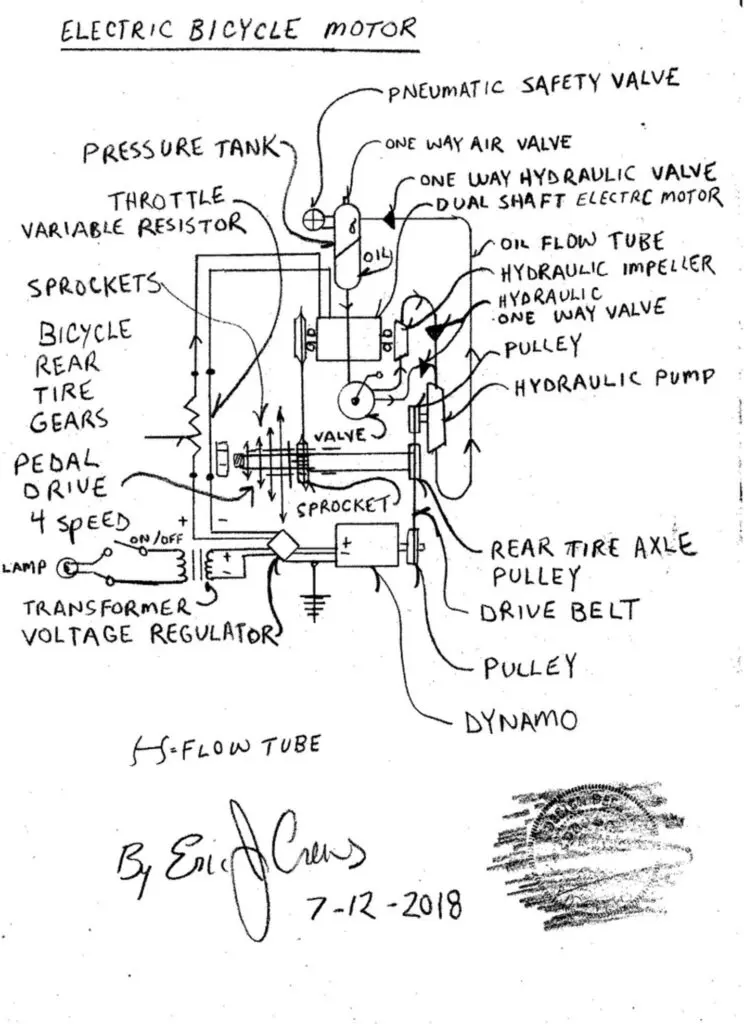 ELECTRIC BICYCLE MOTOR
PNEUMATIC SAFETY VALVE
PRESSURE TANK
ONE WAY AIR VALVE
THROTTLE
VARIABLE RESISTOR
ONE WAY HYDRAULIC VALVE
DUAL SHAFT ELECTRC MOTOR
OIL
OIL FLOW TUBE
SPROCKETS
HYDRAULIC IMPELLER
HYDRAULIC
ONE WAY VALVE
BICYCLE
REAR
TIRE
GEARS
PULLEY
HYDRAULIC PUMP
VALVE
PEDAL
DRIVE
4 SPEED
SPROCKET
+ -
ON/OFF
LAMP
+
-
+
-
REAR TIRE AXLE
PULLEY
TRANSFORMER
VOLTAGE REGULATOR
DRIVE BELT
PULLEY
DYNAMO
=FLOW TUBE
By Eric J Crews
7-12-2018